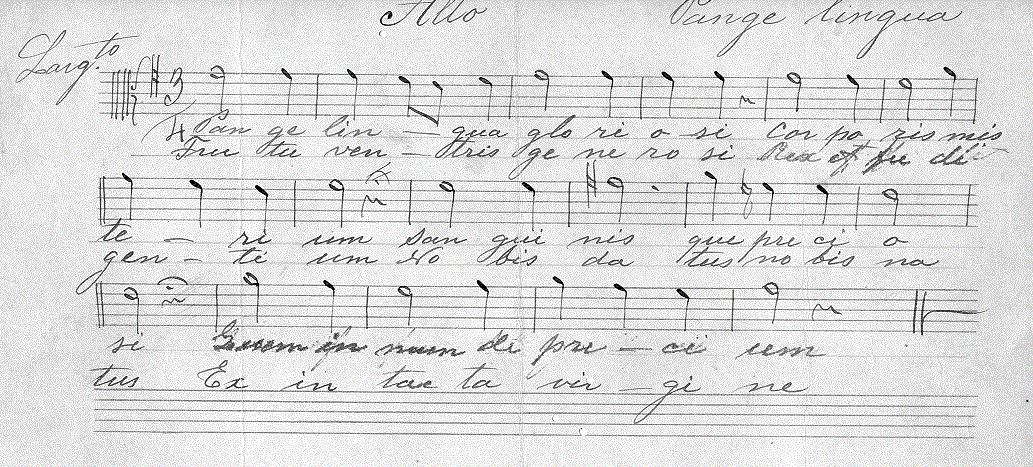 Alto Pange lingua
Larg.to
3
Pan ge lin - gua glo ri o - si Cor po ris mis
Fru tu ven - tris ge ne ro si Rex et fu dit
te - ri um san gui nis que pre ci o
gen - ti um No bis da tus no bis na
si Quem in mun di pre - ci um
tus Ex in tac ta vir - gi ne